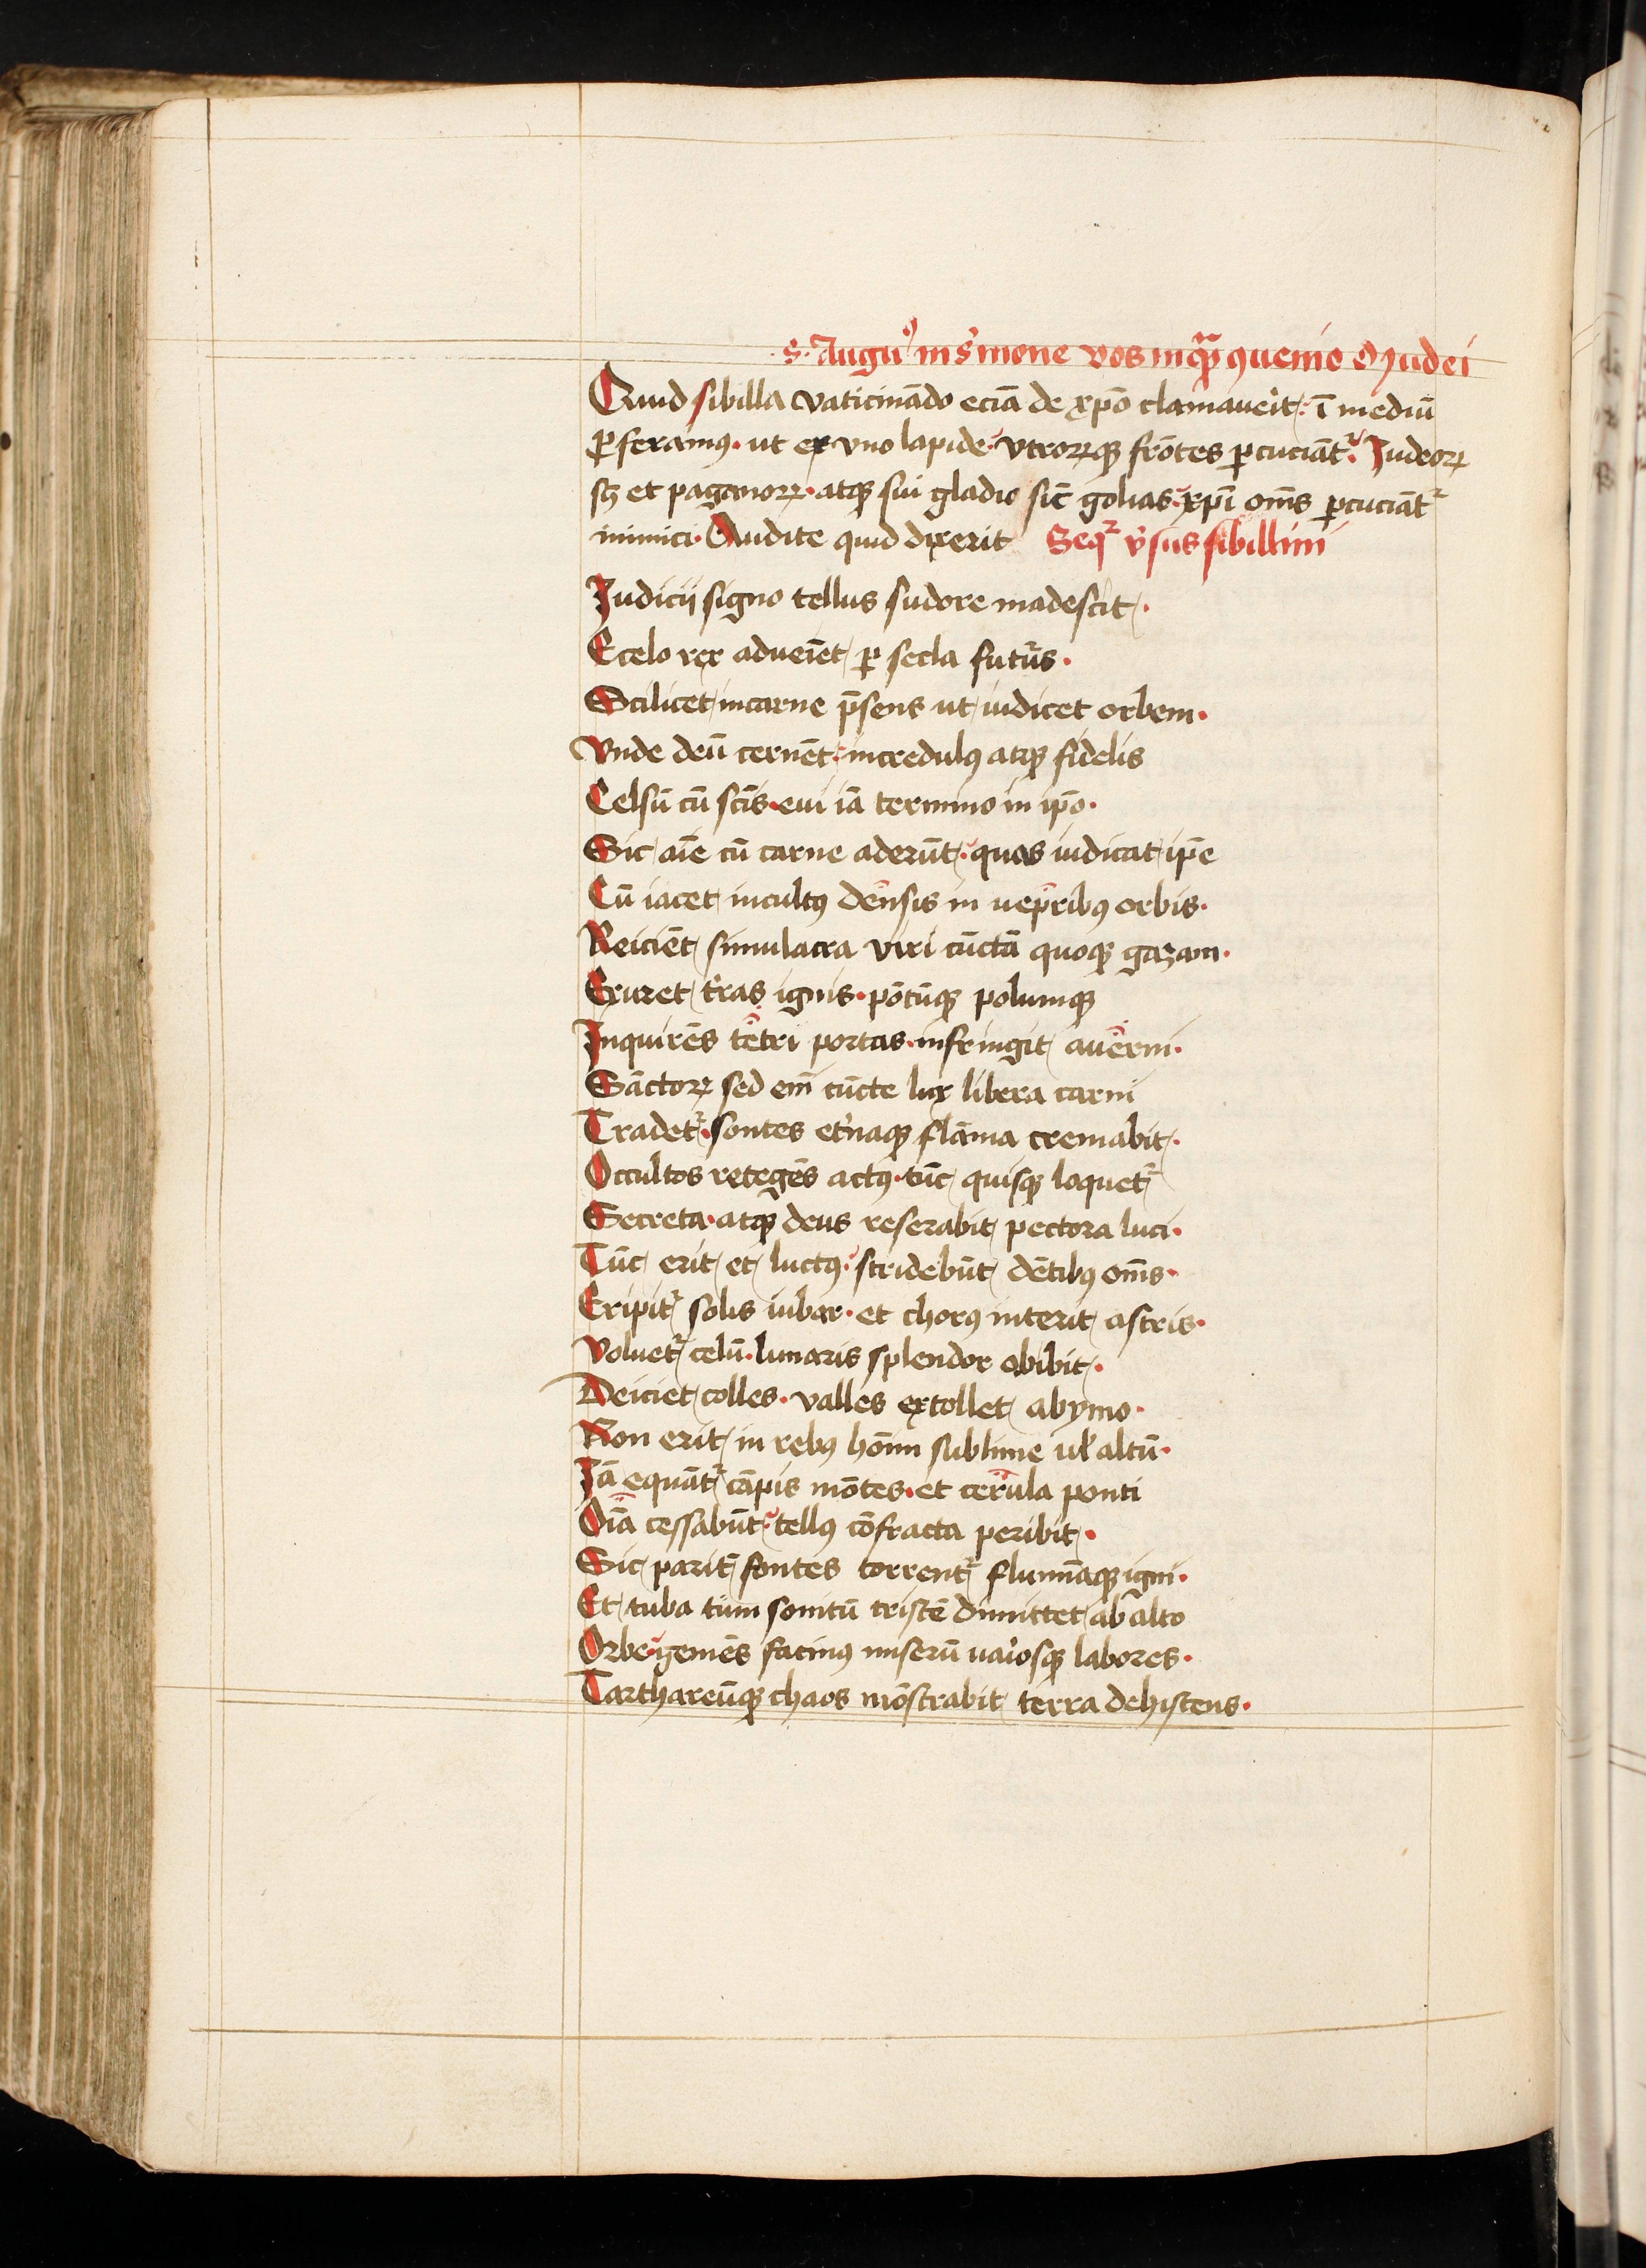 .S. Augu⁹ in s̾mone vos inqᷓꝫ ꝯuenio O Judei
Quid sibilla vaticinādo eciā de xp̄o clamaue̾it: ī mediū
ꝓferamꝰ. ut ex vno lapide. vtroꝝqꝫ frōtes ꝑcuciāt᷑. Judeoꝝ
sꝫ et paganoꝝ. atqꝫ sui gladio sic̄ golias. xp̄i om̄s ꝑcuciāt᷑
inimici. Audite quid dixerit Seq᷑ v̾sus sibillini
Judicii signo tellus sudore madescit.
E celo rex adueīet ꝑ secla futur̾s.
Scilicet in carne p̄sens ut iudicet orbem.
Vnde deū cernēt. incredulꝰ atqꝫ fidelis
Celsū cū sc̄is. eui iā termino in ip̄o.
Sic aīe cū carne aderūt. quas iudicat ip̄e
Cū iacet incultꝰ densis in uepribꝰ orbis.
Reiciēt simulacra viri cūctā quoqꝫ gazam.
Exuret t̾ras ignis. pōtūqꝫ polumqꝫ
Inquirēs tetri portas. infringit auerni.
Sāctoꝝ sed em̄ cūcte lux libera carni
Tradet᷑. sontes et̾naqꝫ flāma cremabit.
Occultos retegēs actꝰ. tūc quisqꝫ loquet᷑
Secreta. atqꝫ deus reserabit pectora luci.
Tūc erit et luctꝰ. stridebūt dētibꝰ om̄s.
Eripit᷑ solis iubar. et chorꝰ interit astris.
Voluet᷑ celū. lunaris splendor obibit.
Deiciet colles. valles extollet ab ymo.
Non erit in rebꝰ hōim sublime uł altū.
Jā equāt᷑ cāpis mōtes. et cerula ponti
Oīa cessabūt. tellꝰ cōfracta peribit.
Sic parit̾ fontes torrent᷑ flumīaqꝫ igni.
Et tuba tūm sonitū tristē dimittet ab alto
Orbe. gemēs facinꝰ miserū ua̾iosqꝫ labores.
Tarthareūqꝫ chaos mōstrabit terra dehiscens.